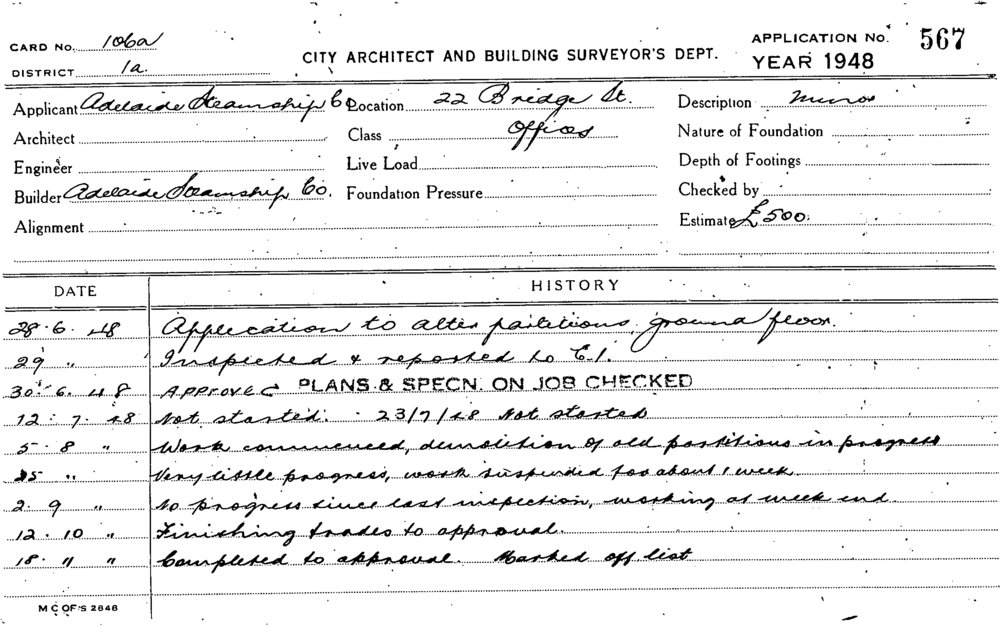 CARD No. 106a
DISTRICT 1a.
CITY ARCHITECT AND BUILDING SURVEYOR'S DEPT.
APPLICATION No. 567
YEAR 1948
Applicant Adelaide Steamship Co Location 22 Bridge St. Description Minor
Architect Class Offices Nature of Foundation
Engineer Live Load Depth of Footings
Builder Adelaide Steamship Co. Foundation Pressure Checked by
Alignment Estimate £500.
DATE HISTORY
28.6.48 Application to alter partitions, ground floor.
29 " Inspected & reported to C.I.
30.6.48 APPROVED PLANS & SPECN. ON JOB CHECKED
12.7.48 Not started. 23/7/48 Not started
5.8 " Work commenced, demolition of old partitions in progress
25 " Very little progress, work suspended for about 1 week
2.9 " No progress since last inspection, working at week end.
12.10 " Finishing trades to approval.
18. " " Completed to approval. Marked off list
M C OF S 2848